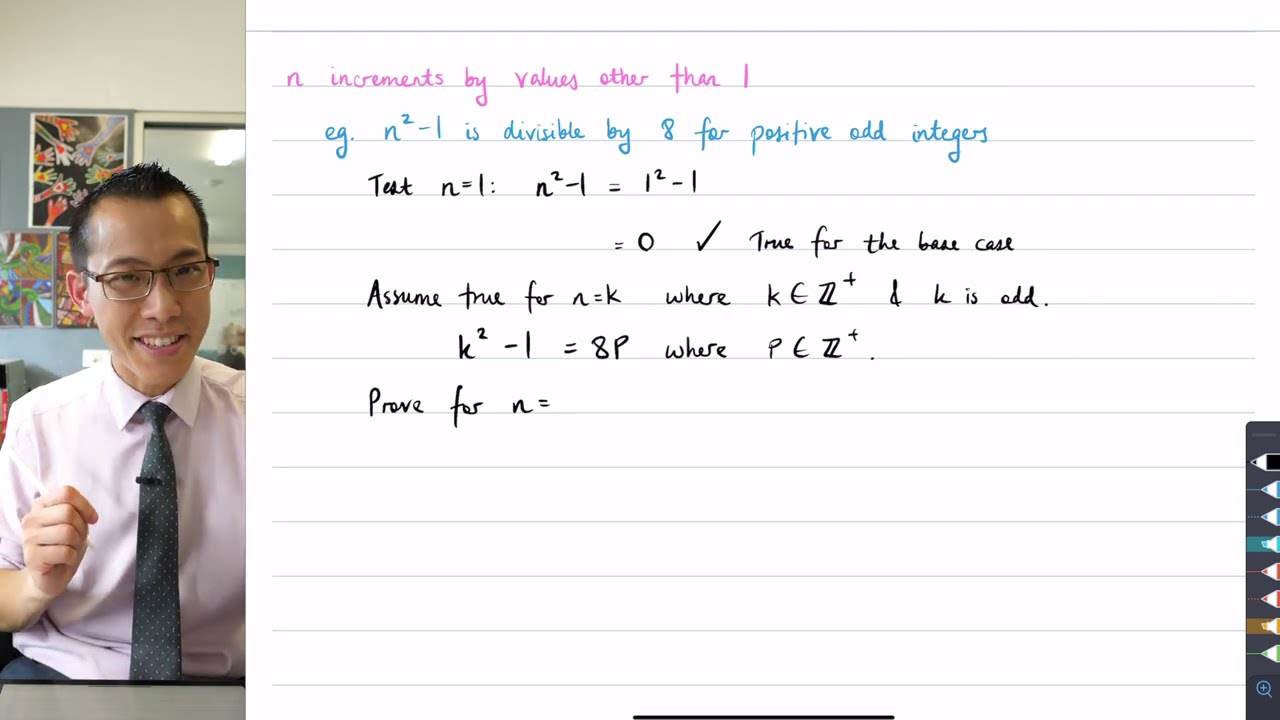 n increments by values other than 1
eg. n²-1 is divisible by 8 for positive odd integers
Test n=1: n²-1 = 1²-1
= 0 ✓ True for the base case
Assume true for n=k where k∈ℤ⁺ & k is odd.
k²-1 = 8P where P∈ℤ⁺.
Prove for n=